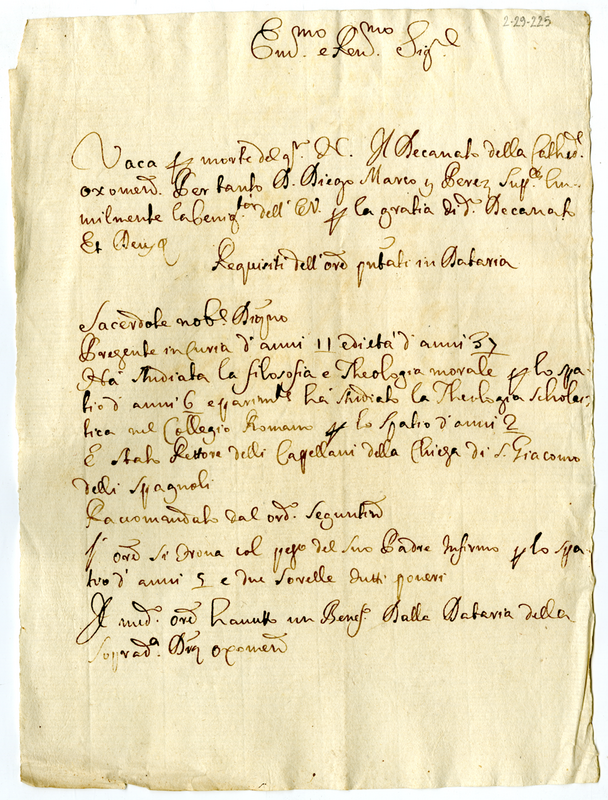 2-29-225
Em.mo e Ren.mo Sig.e
Vaca p morte del q.r N. Il Decanato della Cathed.
oxomen. Per tanto D. Diego Marco y Perez sup.ca hu-
milmente la benig.tà dell' EV. p la gratia di d.o Decanato
Et Deus
Requisiti dell'ore putati in Dataria
Sacerdote nob.e
Presente in Curia d'anni 11 ed età d'anni 37
Ha studiata la filosofia e Theologia morale p lo spa-
tio d'anni 6 e parim.te ha studiato la Theologia scholas-
tica nel Collegio Romano p lo spatio d'anni 2
È stato Rettore delli Capellani della Chiesa di S. Giacomo
delli spagnoli
Raccomandato dal ord. seguntin
l'ore si trova col peso del suo Padre Infirmo p lo spa-
tio d'anni 5 e due sorelle tutti poveri
Il med. ore havuto un Benef. Dalla Dataria della
soprad.a oxomen